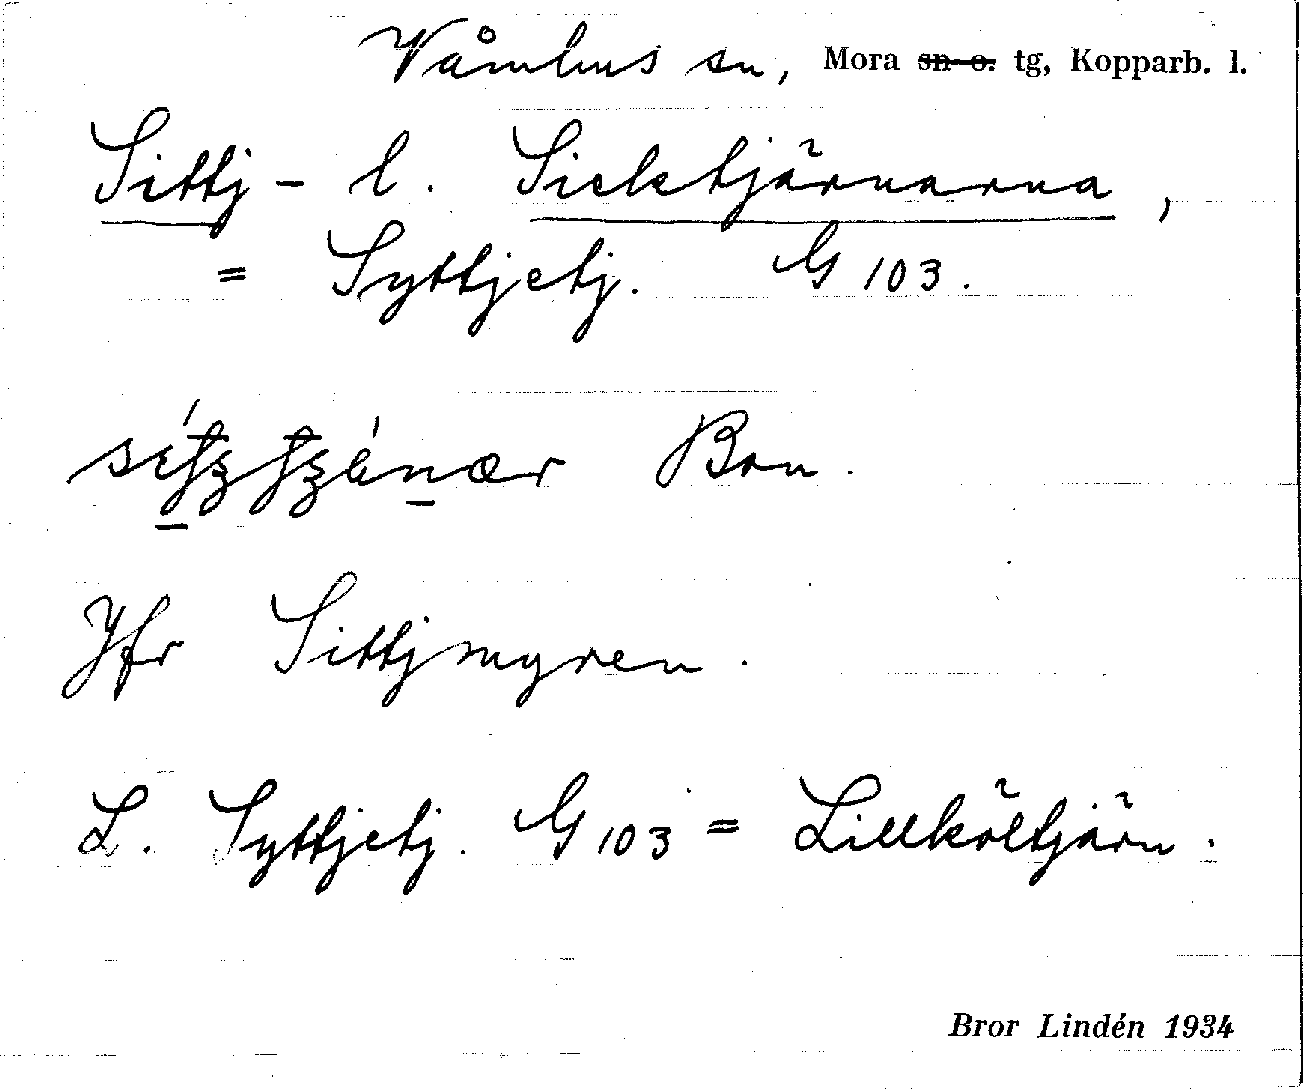 Våmhus sn, Mora sn o. tg, Kopparb. l.
Sittj- l. Sicktjärnarna,
= Syttjetj. G 103.
Bon.
Jfr Sittjmyren.
L. Syttjetj. G 103 = Lillköltjärn.
Bror Lindén 1934